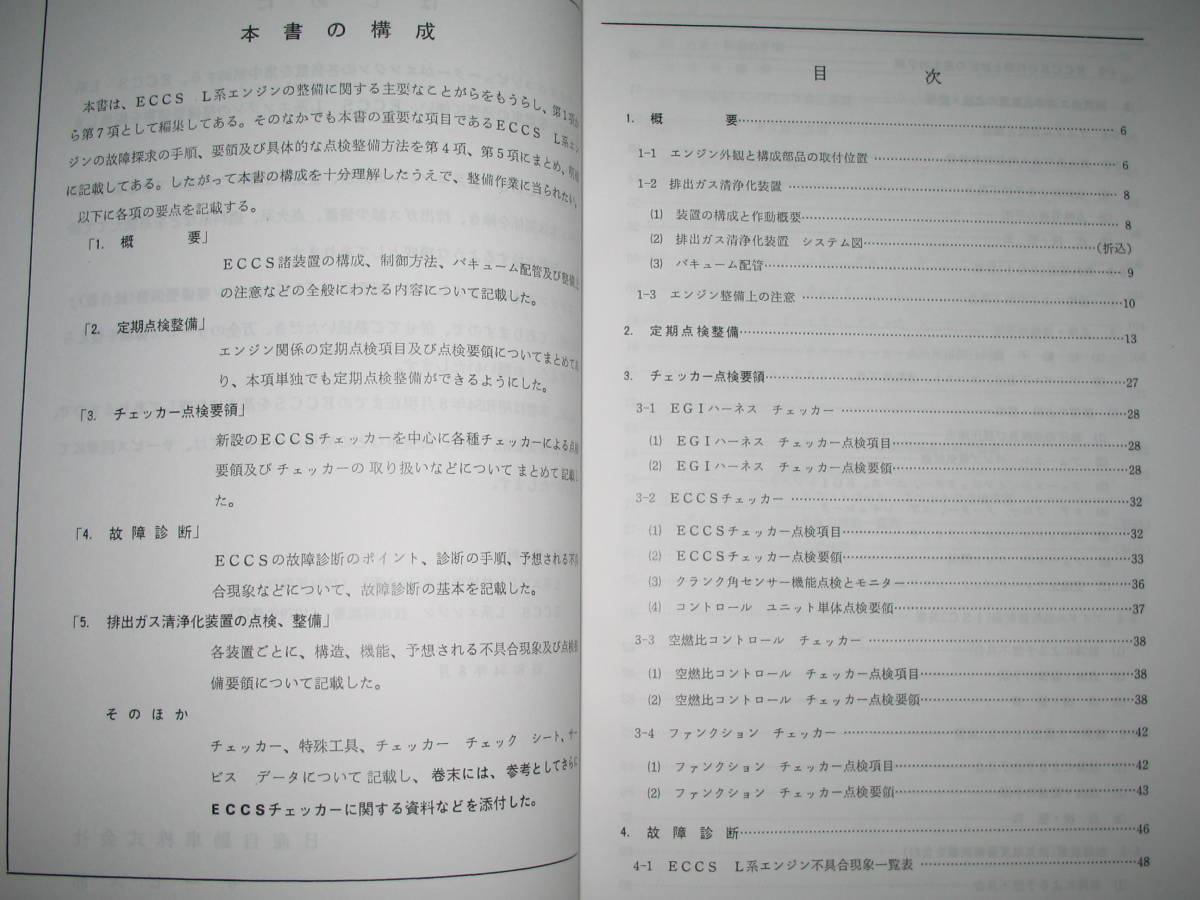 本書の構成
本書は、ECCS L系エンジンの整備に関する主要なことがらをもうらし、第1項か
ら第7項として編集してある。そのなかでも本書の重要な項目であるECCS L系エン
ジンの故障探求の手順、要領及び具体的な点検整備方法を第4項、第5項にまとめ、明細
に記載してある。したがって本書の構成を十分理解したうえで、整備作業に当られたい。
以下に各項の要点を記載する。
「1. 概 要」
ECCS諸装置の構成、制御方法、バキューム配管及び整備上
の注意などの全般にわたる内容について記載した。
「2. 定期点検整備」
エンジン関係の定期点検項目及び点検要領についてまとめてあ
り、本項単独でも定期点検整備ができるようにした。
「3. チェッカー点検要領」
新設のECCSチェッカーを中心に各種チェッカーによる点検
要領及びチェッカーの取り扱いなどについてまとめて記載し
た。
「4. 故障診断」
ECCSの故障診断のポイント、診断の手順、予想される不具
合現象などについて、故障診断の基本を記載した。
「5. 排出ガス清浄化装置の点検、整備」
各装置ごとに、構造、機能、予想される不具合現象及び点検整
備要領について記載した。
そのほか
チェッカー、特殊工具、チェッカー チェック シート、サー
ビス データについて記載し、巻末には、参考としてさらに
ECCSチェッカーに関する資料などを添付した。
目 次
1. 概 要 6
1-1 エンジン外観と構成部品の取付位置 6
1-2 排出ガス清浄化装置 8
(1) 装置の構成と作動概要 8
(2) 排出ガス清浄化装置 システム図 (折込)
(3) バキューム配管 9
1-3 エンジン整備上の注意 10
2. 定期点検整備 13
3. チェッカー点検要領 27
3-1 EGIハーネス チェッカー 28
(1) EGIハーネス チェッカー点検項目 28
(2) EGIハーネス チェッカー点検要領 28
3-2 ECCSチェッカー 32
(1) ECCSチェッカー点検項目 32
(2) ECCSチェッカー点検要領 33
(3) クランク角センサー機能点検とモニター 36
(4) コントロール ユニット単体点検要領 37
3-3 空燃比コントロール チェッカー 38
(1) 空燃比コントロール チェッカー点検項目 38
(2) 空燃比コントロール チェッカー点検要領 38
3-4 ファンクション チェッカー 42
(1) ファンクション チェッカー点検項目 42
(2) ファンクション チェッカー点検要領 43
4. 故障診断 46
4-1 ECCS L系エンジン不具合現象一覧表 48